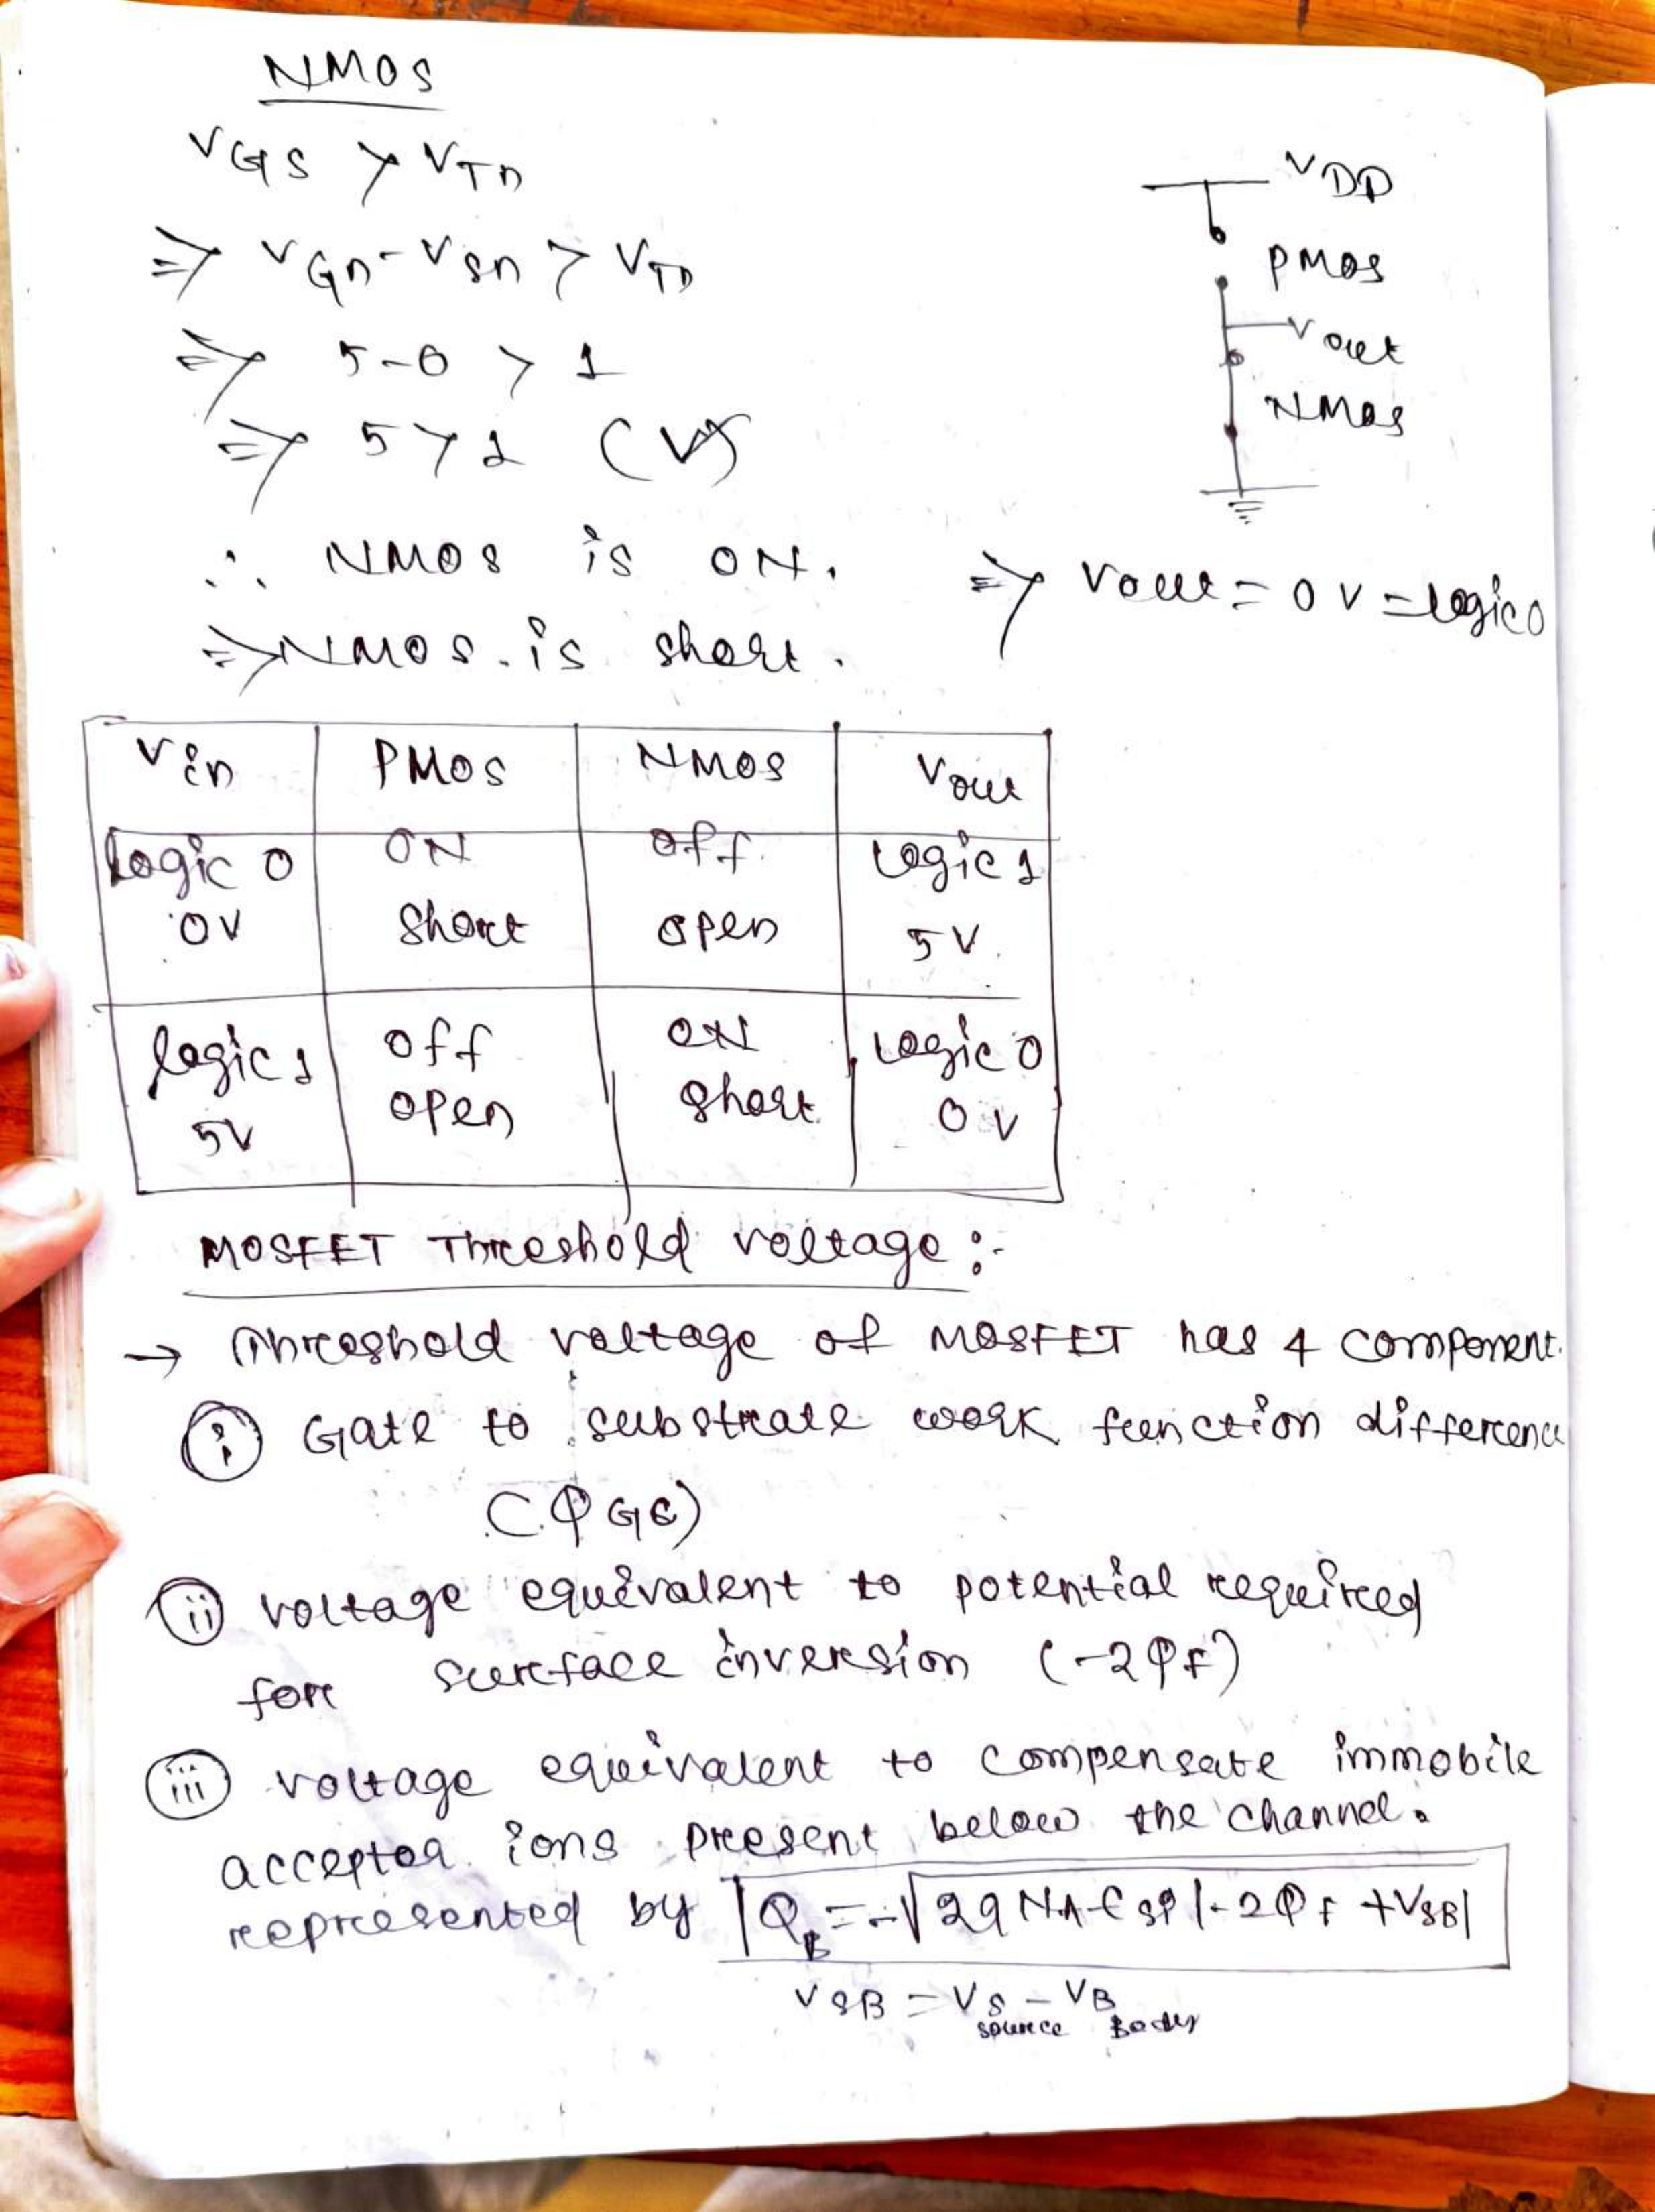 NMOS
VGS > VTn
⇒ VGn - VSn > VTn
⇒ 5-0 > 1
⇒ 5 > 1 (✓)
∴ NMOS is ON.
⇒ NMOS is short.
VDD
PMOS
Vout
NMOS
⇒ Vout = 0V = logic 0
Vin PMOS NMOS Vout
logic 0 ON off logic 1
0V short open 5V.
logic 1 off ON logic 0
5V open short 0V
MOSFET Threshold voltage :-
→ Threshold voltage of MOSFET has 4 component.
(i) Gate to substrate work function difference
(ΦGC)
(ii) voltage equivalent to potential required
for surface inversion (-2ΦF)
(iii) voltage equivalent to compensate immobile
acceptor ions present below the channel.
represented by QB = -√2qNA€si|-2ΦF + VSB|
VSB = VS - VB
source Body